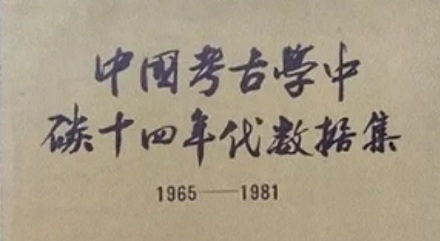 中国考古學中
碳十四年代数据集
1965——1981